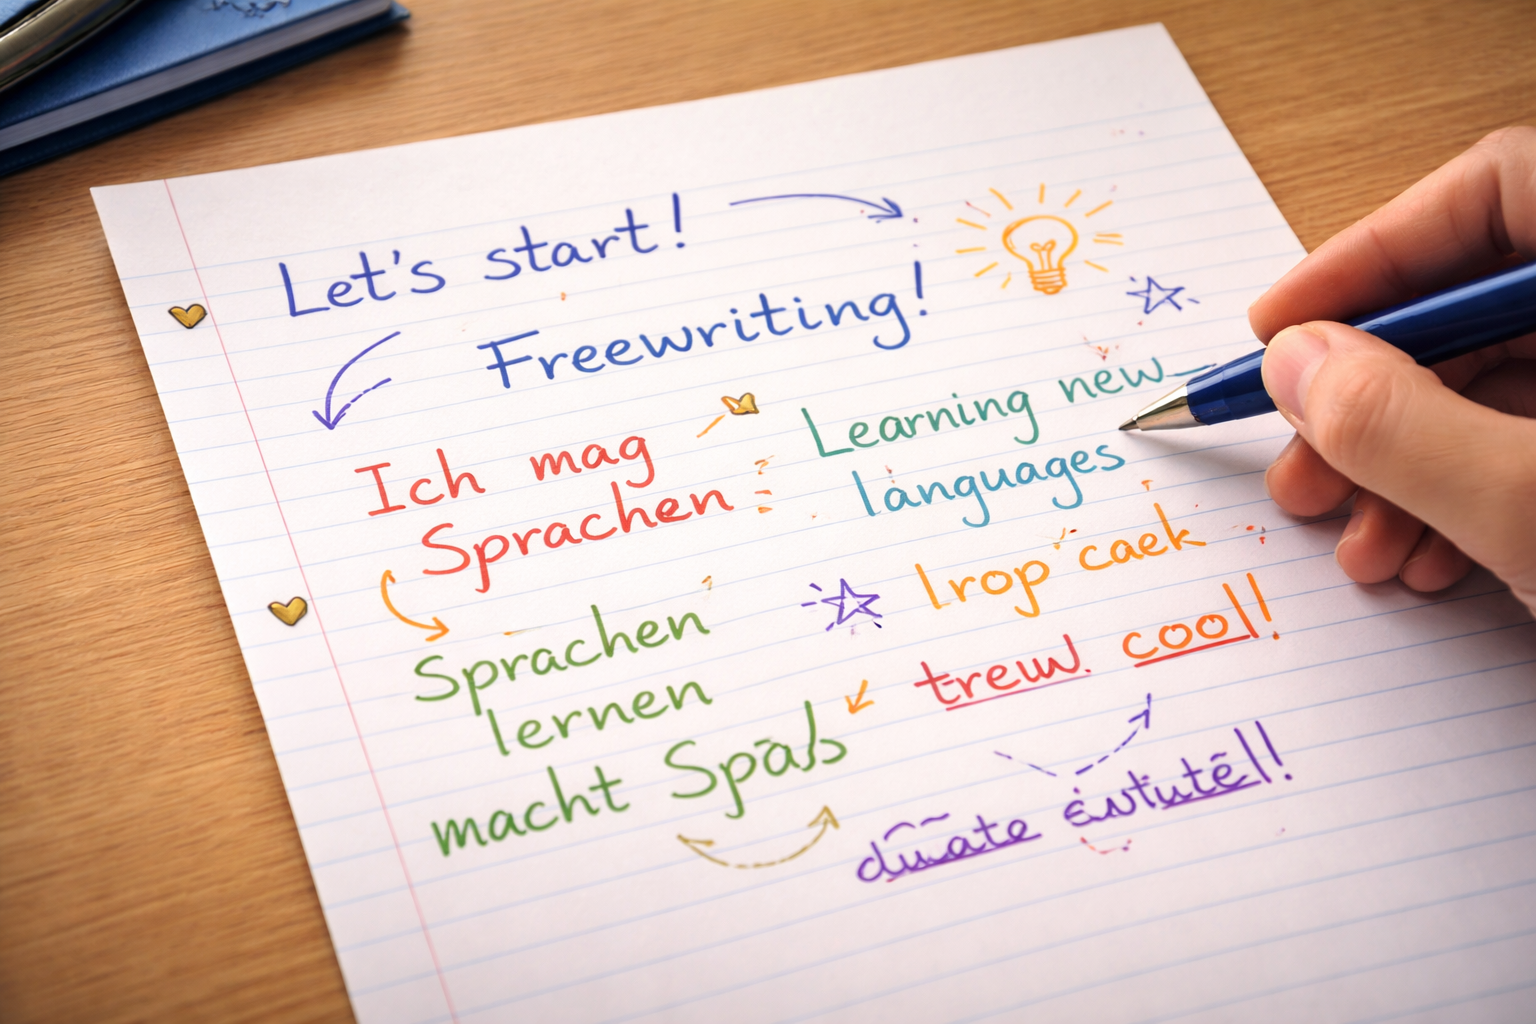 Let's start!
Freewriting!
Ich mag
Sprachen
Sprachen
lernen
macht Spaß
Learning new
languages
lrop caek
cool!